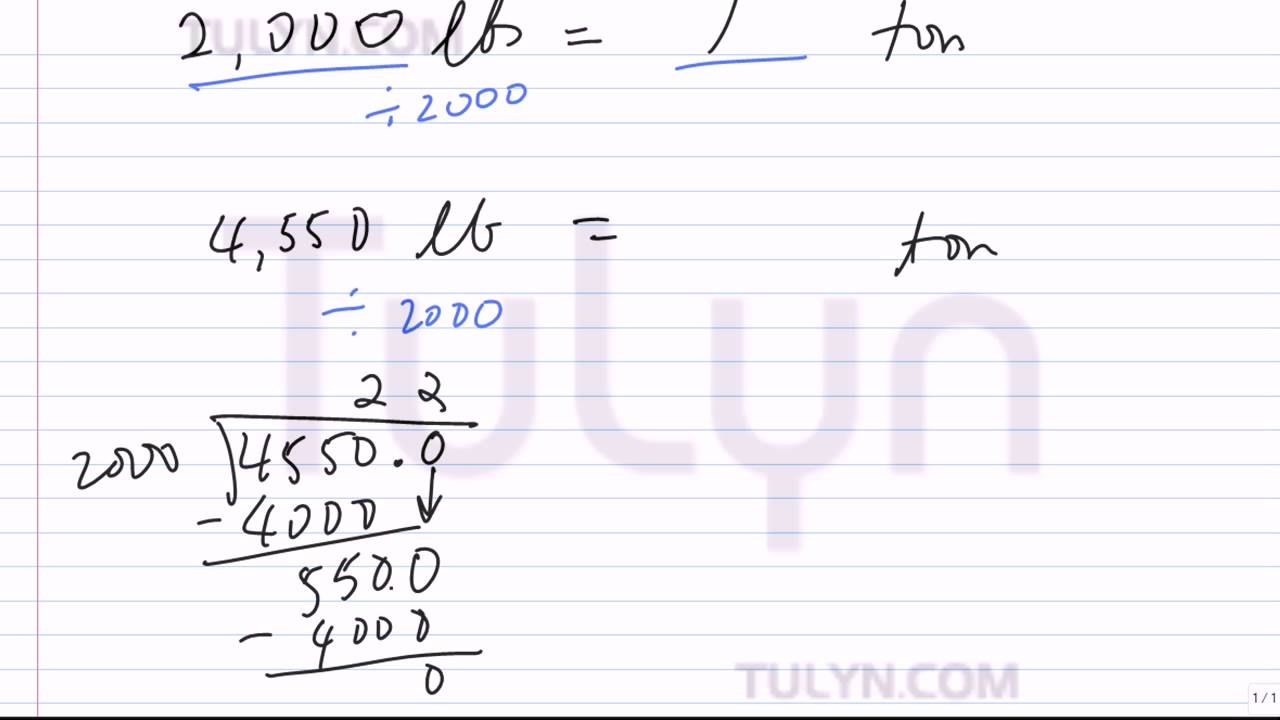 TULYN.COM
2,000 lbs = 1 ton
÷ 2000
4,550 lb = ton
÷ 2000
Tulyn
2 2
2000 4550.0
- 4000
550.0
- 4000
0
TULYN.COM
1 / 1